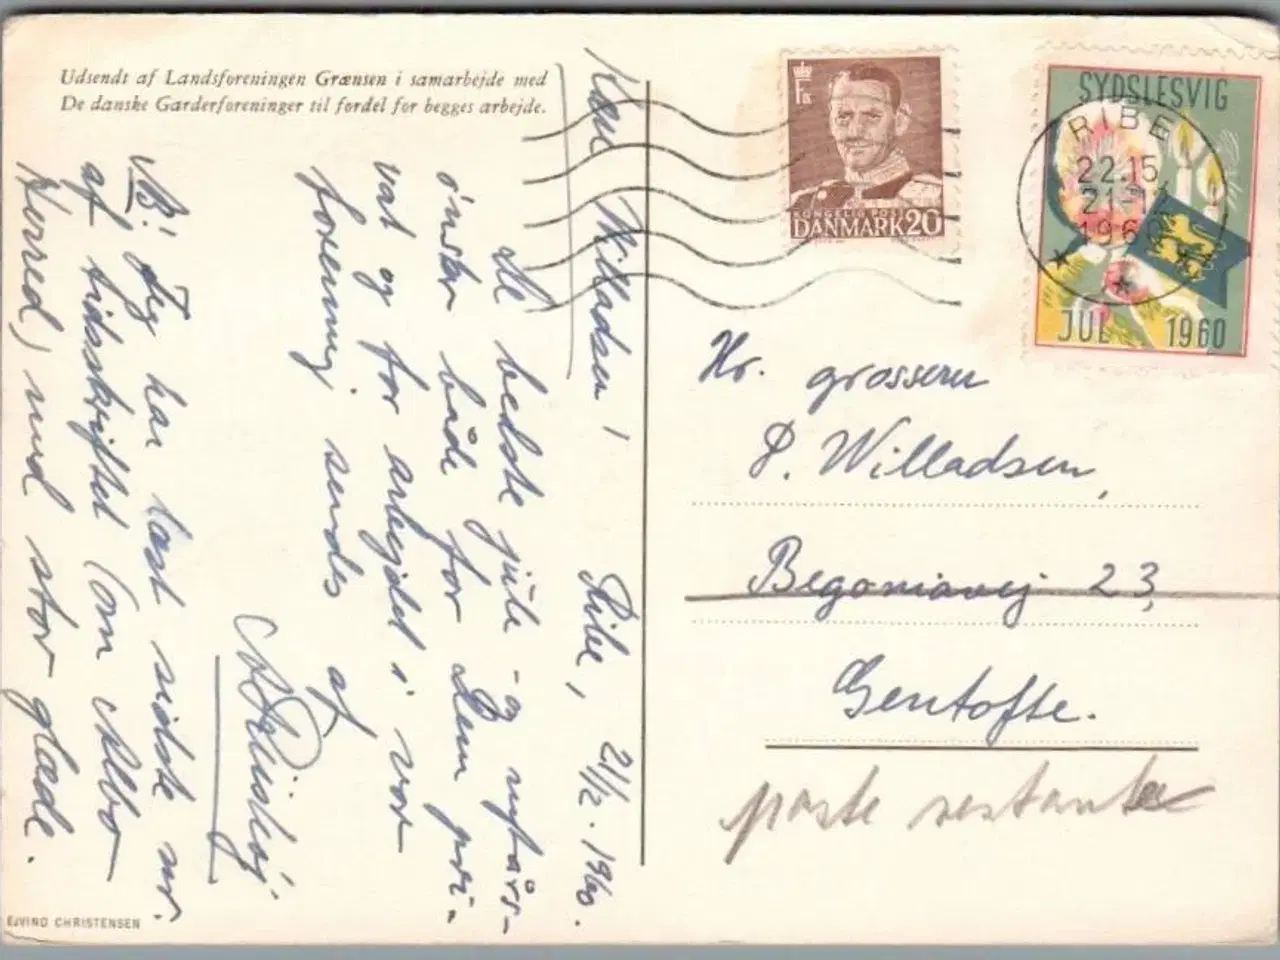 Udsendt af Landsforeningen Grænsen i samarbejde med
De danske Garderforeninger til fordel for begges arbejde.
Kære Willadsen!
Ribe, 21/12. 1960.
De bedste jule- og nytårs-
ønsker både for Dem pri-
vat og for arbejdet i vor
forening sendes af
NB! Jeg har læst sidste nr.
af tidsskriftet (om Albo
Herred) med stor glæde.
EJVIND CHRISTENSEN
KONGELIG POST
DANMARK 20
SYDSLESVIG
JUL 1960
RIBE
22.15
21-12
1960
Hr. grosserer
P. Willadsen,
Begoniavej 23,
Gentofte.
poste restante